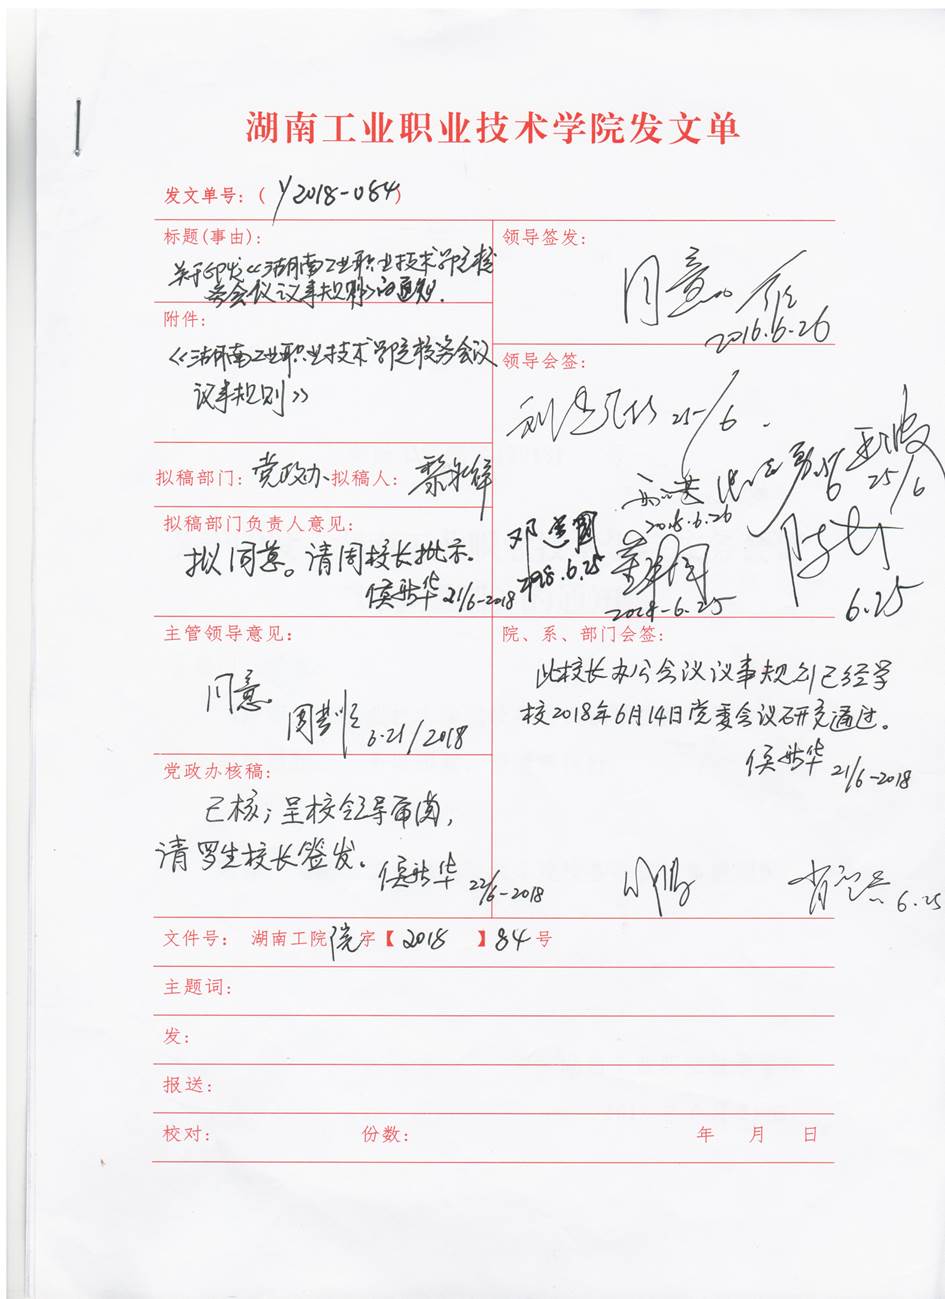 湖南工业职业技术学院发文单
发文单号：( Y2018-084)
标题(事由)：
关于印发《湖南工业职业技术学院校
务会议议事规则》的通知.
附件：
《湖南工业职业技术学院校务会议
议事规则》
拟稿部门：党政办 拟稿人：
拟稿部门负责人意见：
拟同意。请周校长批示。
21/6-2018
主管领导意见：
同意。
6.21/2018
党政办核稿：
已核；呈校领导审阅，
请罗生校长签发。
22/6-2018
领导签发：
同意。
2016.6.26
领导会签：
25/6.
25/6
2018.6.26
邓
2018.6.25
2018-6.25
6.25
院、系、部门会签：
此校长办公会议议事规则已经学
校2018年6月14日党委会议研究通过。
21/6-2018
6.25
文件号： 湖南工院院字【2018 】84号
主题词：
发：
报送：
校对： 份数： 年 月 日